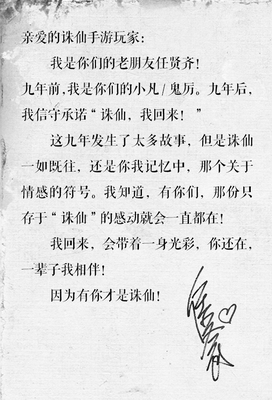 亲爱的诛仙手游玩家：
我是你们的老朋友任贤齐！
九年前，我是你们的小凡/鬼厉。九年后，
我信守承诺“诛仙，我回来！”
这九年发生了太多故事，但是诛仙
一如既往，还是你我记忆中，那个关于
情感的符号。我知道，有你们，那份只
存于“诛仙”的感动就会一直都在！
我回来，会带着一身光彩，你还在，
一辈子我相伴！
因为有你才是诛仙！